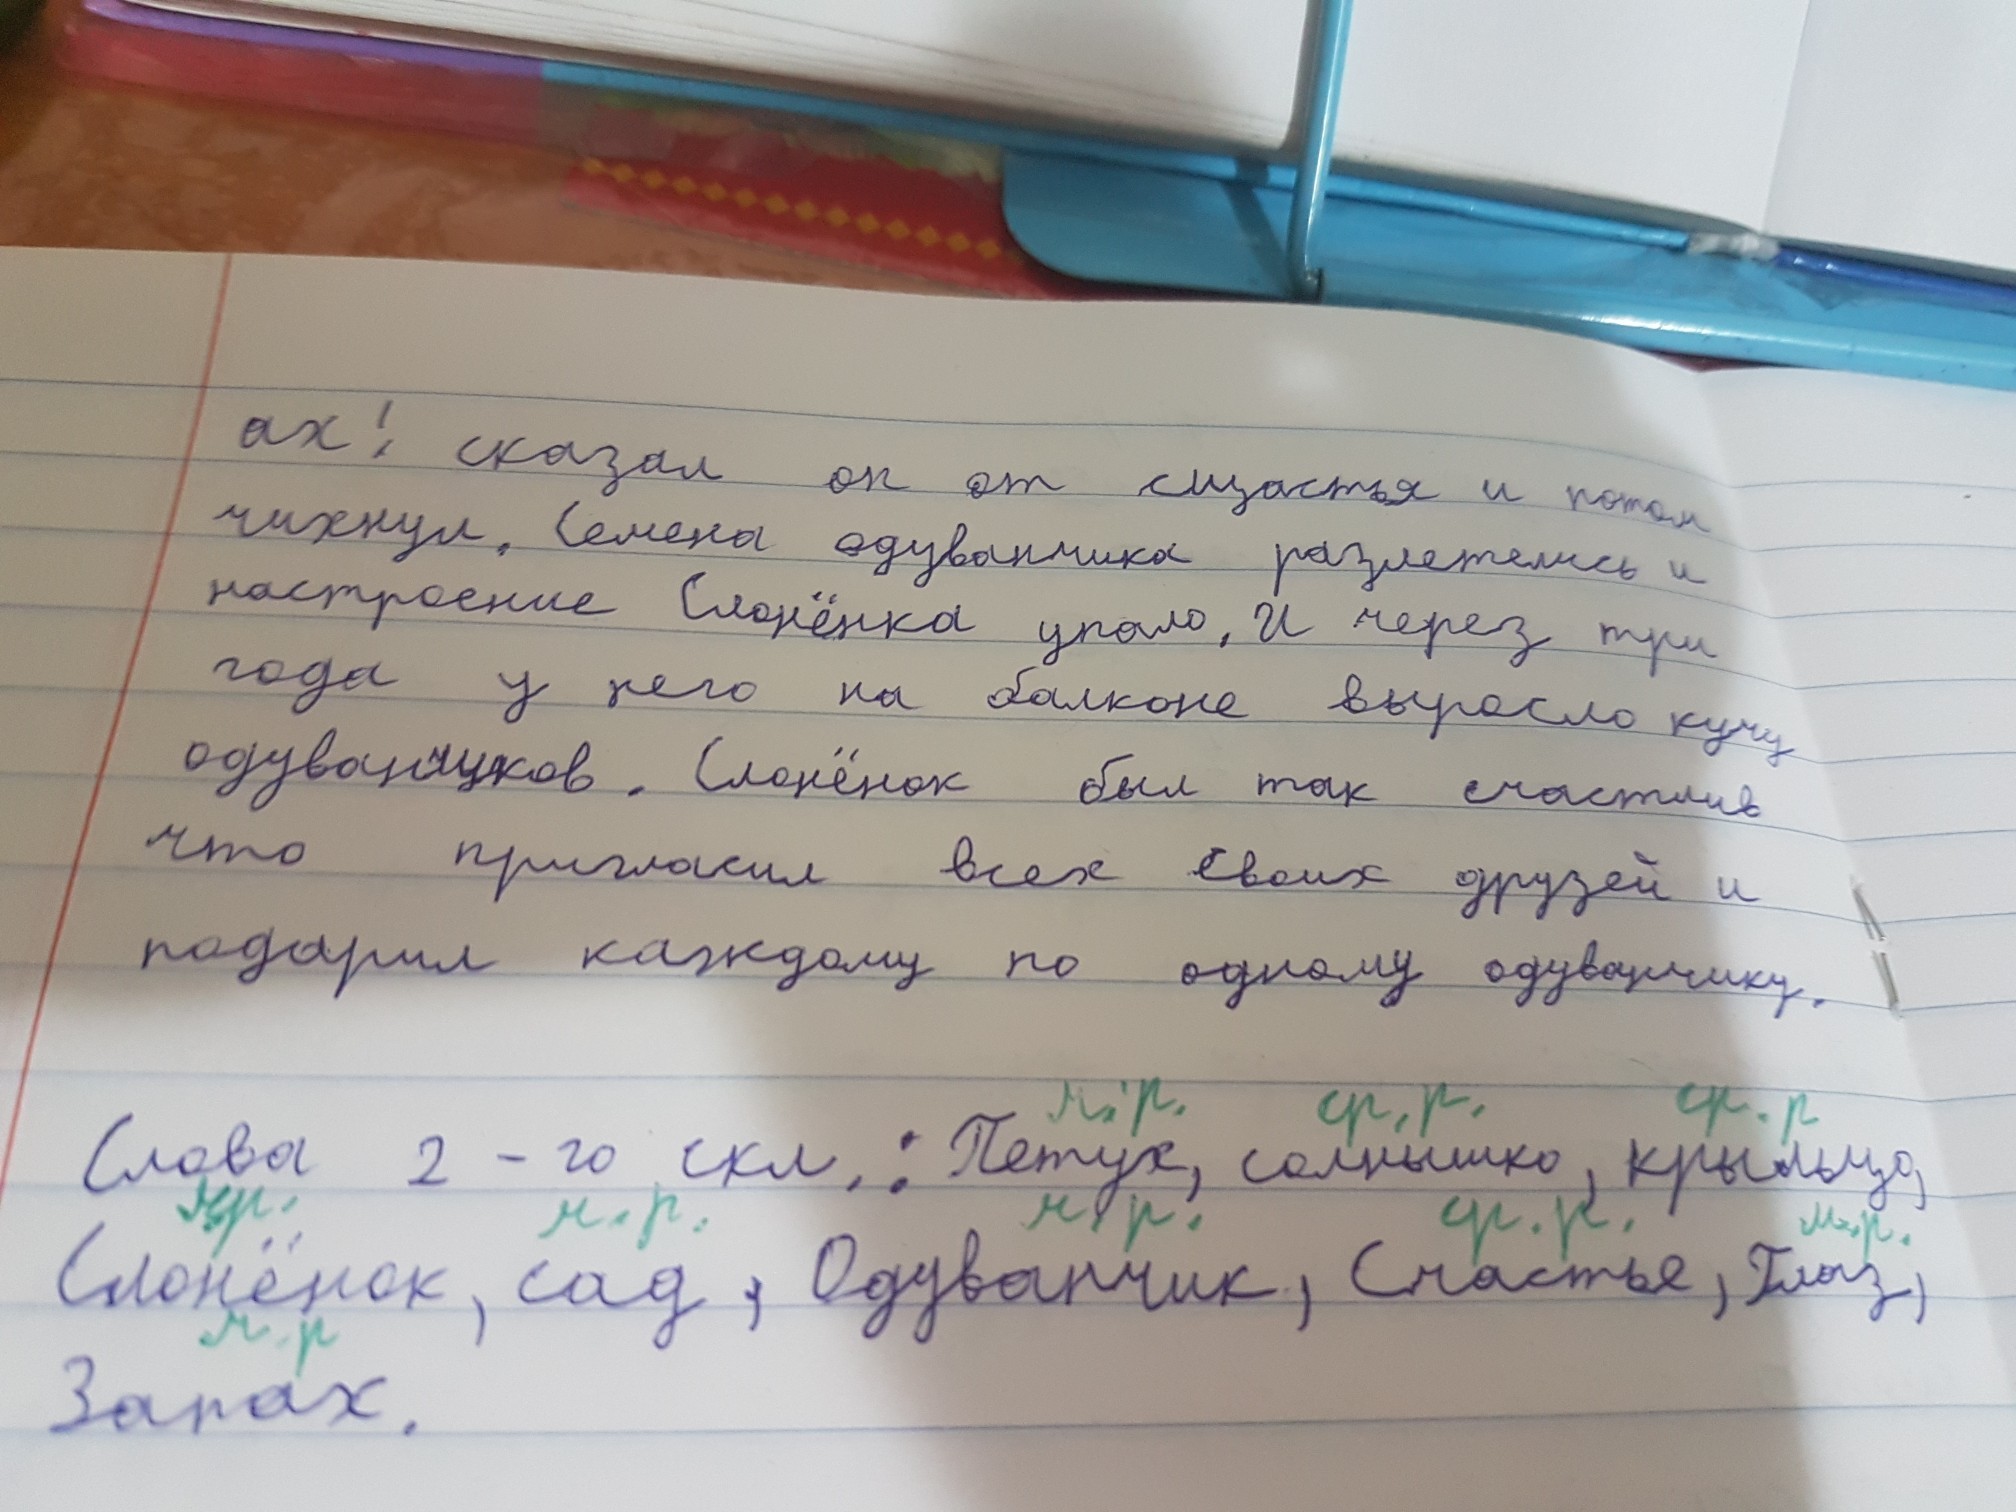 ах! сказал он от сщастья и потом
чихнул. Семена одуванчика разлетелись и
настроение Слонёнка упало. И через три
года у него на балконе выросло кучу
одуванчиков. Слонёнок был так счастлив
что пригласил всех своих друзей и
подарил каждому по одному одуванчику.
м.р. ср.р. ср.р
Слова 2-го скл.: Петух, солнышко, крыльцо,
м.р. м.р. ср.р. м.р.
Слонёнок, сад, Одуванчик, Счастье, Глаз,
м.р
Запах.